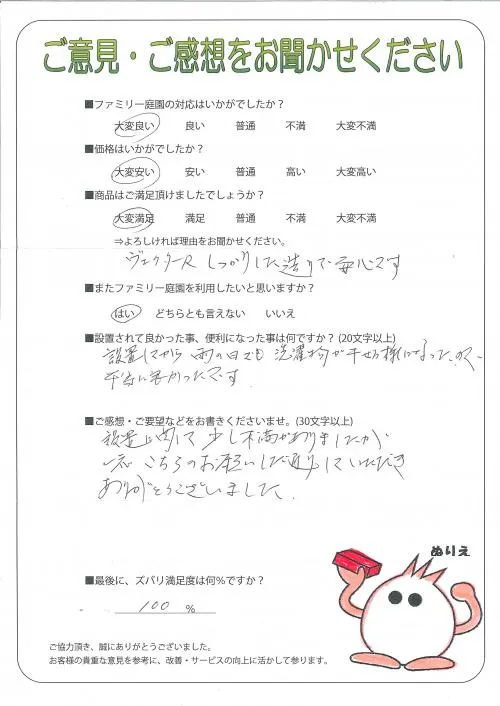 ご意見・ご感想をお聞かせください
■ファミリー庭園の対応はいかがでしたか？
大変良い 良い 普通 不満 大変不満
■価格はいかがでしたか？
大変安い 安い 普通 高い 大変高い
■商品はご満足頂けましたでしょうか？
大変満足 満足 普通 不満 大変不満
⇒よろしければ理由をお聞かせください。
ヴェクターR しっかりした造りで安心です
■またファミリー庭園を利用したいと思いますか？
はい どちらとも言えない いいえ
■設置されて良かった事、便利になった事は何ですか？(20文字以上)
設置してから 雨の日でも 洗濯物が干せる様になったので、
に良かったです
■ご感想・ご要望などをお書きくださいませ。(30文字以上)
設置に関して 少し不満がありましたが、
一応 こちらのお願いした通りにしていただき
ありがとうございました。
ぬりえ
■最後に、ズバリ満足度は何%ですか？
100 %
ご協力頂き、誠にありがとうございました。
お客様の貴重な意見を参考に、改善・サービスの向上に活かして参ります。